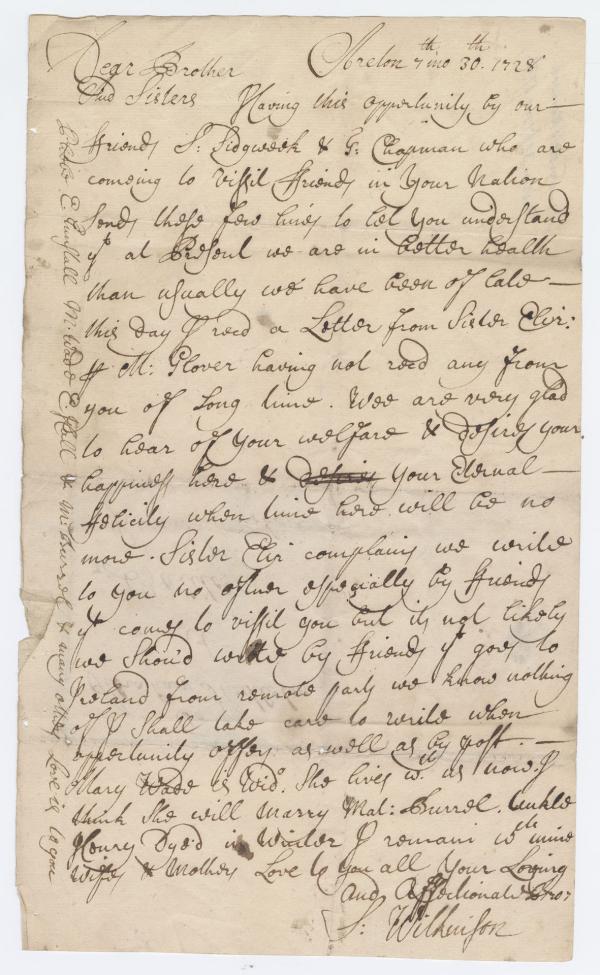 Dear Brother Areton 7th mo 30th. 1728
And Sisters Having this opportunity by our
ffriends J: Sidgweek & G: Chapman who are
comeing to vissit ffriends in Your Nation
Sends these few lines to let You understand
yt at Present we are in better health
than usually we have been of late
this day I recd a Letter from Sister Eliz:
ff M: Glover having not recd any from
you of Long time. Wee are very glad
to hear of Your welfare & desires your
happiness here & desires Your Eternal
ffelicity when time here will be no
more. Sister Eliz complains we write
to you no oftner especially by ffriends
yt comes to vissit you but its not likely
we Should write by ffriends yt goes to
Ireland from remote parts we know nothing
of I Shall take care to write when
oppertunity offers as well as by post.
Mary Wade is Wido. She lives wth us now I
think She will Marry Mat: Burrel. Unkle
Henry Dye'd in Winter I remain wth mine
wifes & Mothers Love to you all Your Loving
and Affectionate Bror
J: Wilkinson
E. Tunstall M: Wade E. Hall & M: Burrel & many others Love is to you